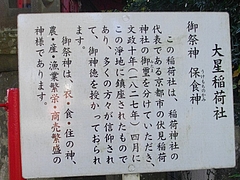 大星稲荷社
御祭神 保食神
うけもちのかみ
この稲荷社は、稲荷神社の
代表である京都市の伏見稲荷
神社の御霊を分けていただき、
文政十年(一八二七年)四月に
この浄地に鎮座されたもので
あり、多くの方々が信仰され
て、御神徳を授かっておられ
ます。
御祭神は、衣・食・住の神、
農・産・漁業繁栄・商売繁盛の
神様であります。